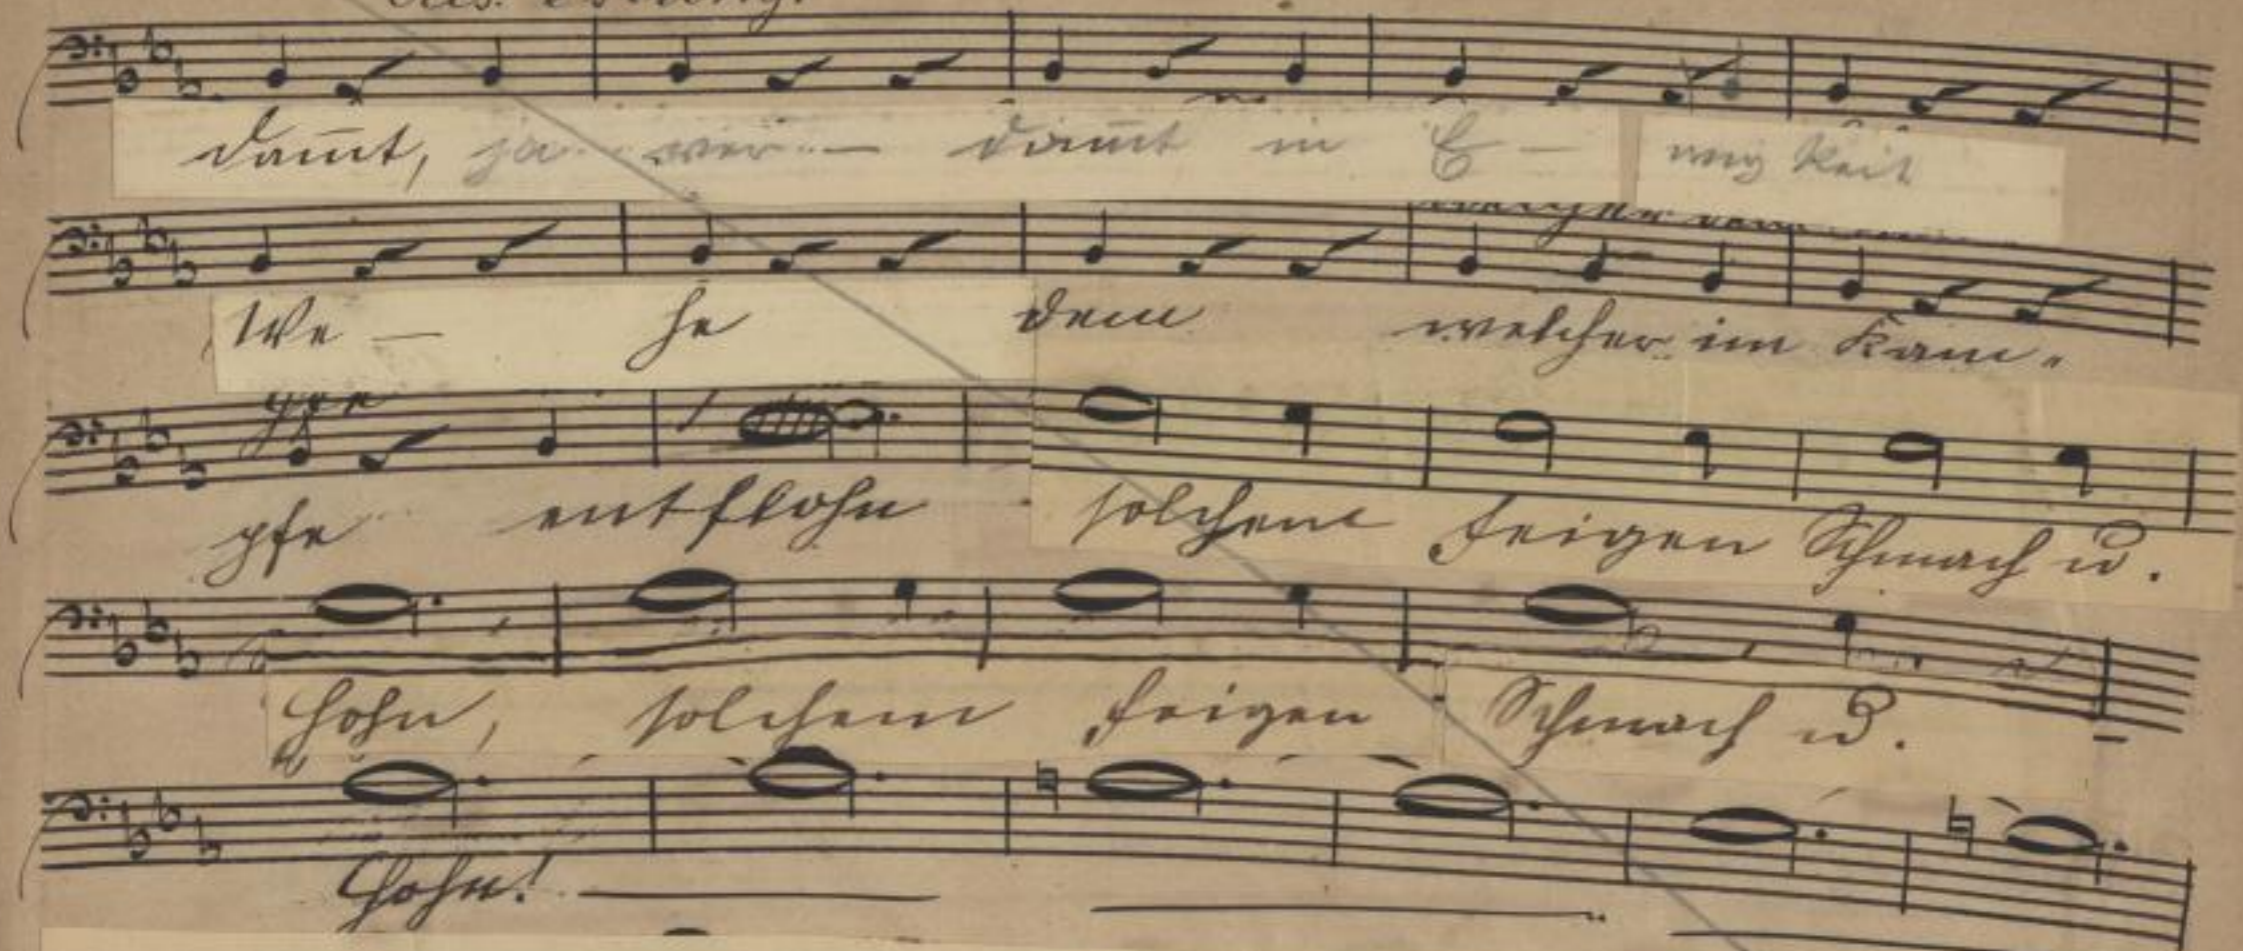 damt, ja ver - damt in E - wig keit
We - he dem welcher im Kam -
pfe entflohn solchem feigen Schmach u.
Hohn, solchem feigen Schmach u.
Hohn!